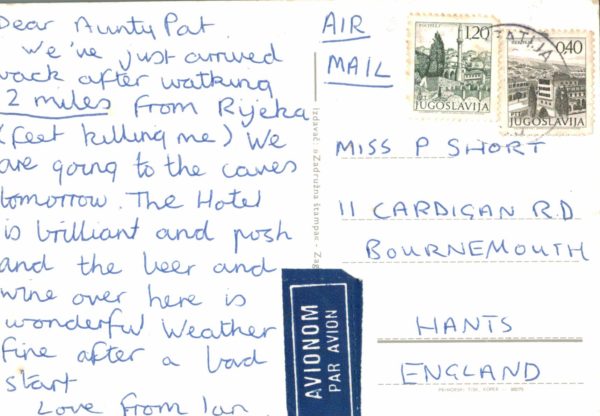 Dear Aunty Pat.
We've just arrived
back after walking
2 miles from Rijeka
(feet killing me) We
are going to the caves
tomorrow. The Hotel
is brilliant and posh
and the beer and
wine over here is
wonderful Weather
fine after a bad
start
Love from Ian.
AIR
MAIL
1.20
JUGOSLAVIJA
0,40
JUGOSLAVIJA
Izdavač »Zadružna štampa« - Zag
MISS P SHORT
11 CARDIGAN RD
BOURNEMOUTH
HANTS
ENGLAND
AVIONOM
PAR AVION